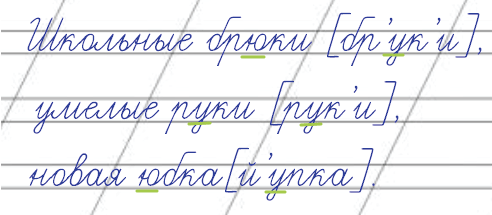 Школьные брюки [бр'ук'и],
умелые руки [рук'и],
новая юбка[й'упка].